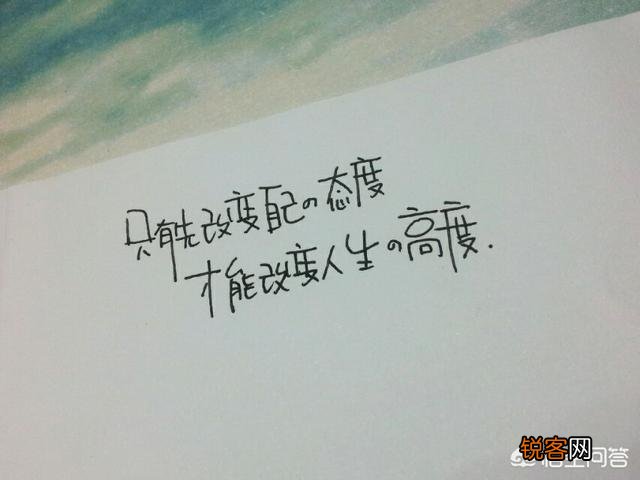 只有先改变自己の态度
才能改变人生の高度.
锐客网
悟空问答